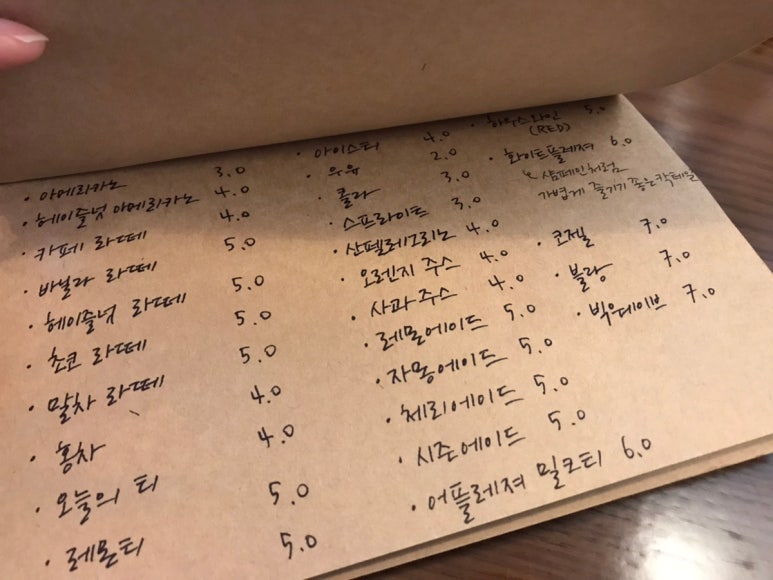 · 아메리카노 3.0
· 헤이즐넛 아메리카노 4.0
· 카페 라떼 4.0
· 바닐라 라떼 5.0
· 헤이즐넛 라떼 5.0
· 초코 라떼 5.0
· 말차 라떼 5.0
· 홍차 4.0
· 오늘의 티 4.0
· 레몬티 5.0
5.0
· 아이스티 4.0
· 우유 2.0
· 콜라 3.0
· 스프라이트 3.0
· 산펠레그리노 4.0
· 오렌지 주스 4.0
· 사과주스 4.0
· 레몬에이드 5.0
· 자몽에이드 5.0
· 체리에이드 5.0
· 시즌에이드 5.0
· 어플레져 밀크티 6.0
· 하우스와인 5.0
(RED)
· 화이트플레져 6.0
샴페인처럼
가볍게 즐기기 좋은 칵테일
· 코젤 7.0
· 블랑 7.0
· 빅웨이브 7.0